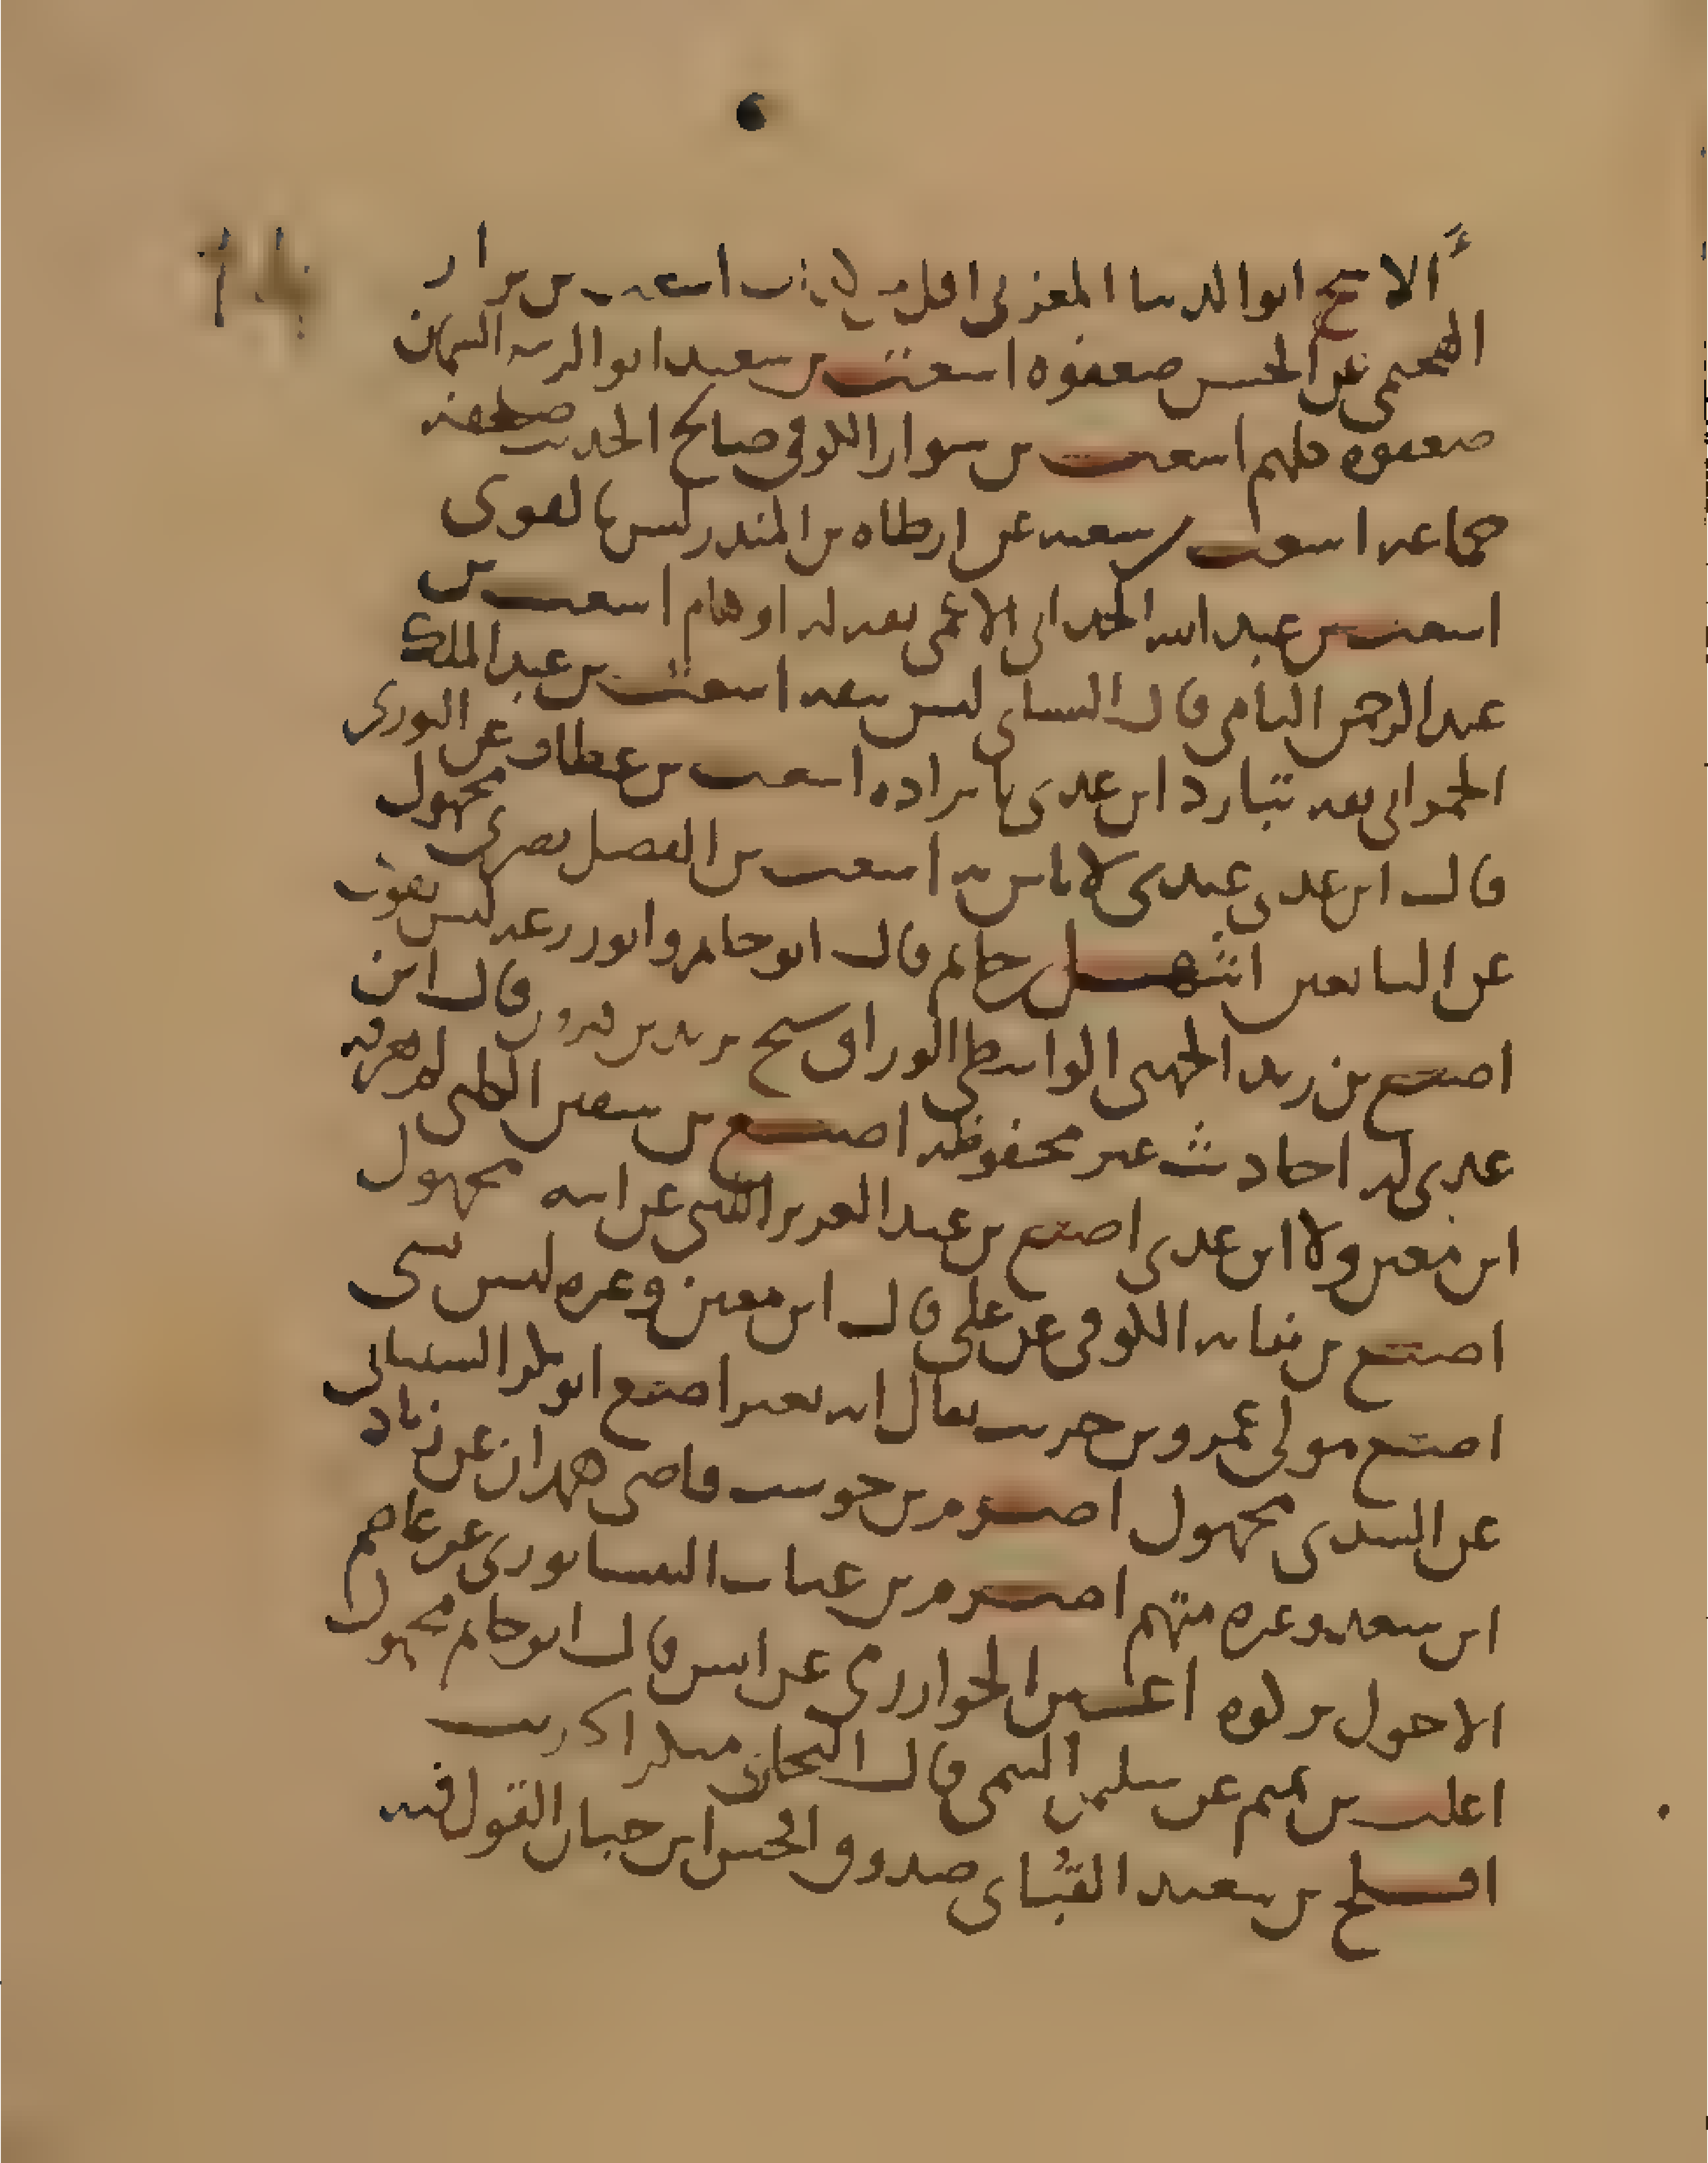 الاشج ابو الدنيا المغربي اشعث بن براز
الهجيمي عن الحسن ضعفوه اشعث بن سعيد ابو الربيع السمان
ضعفوه كلهم اشعث بن سوار الكوفي صالح الحديث ضعفه
جماعة اشعث بن شعبه عن ارطاه بن المنذر ليس بالقوي
اشعث بن عبد الله الحداني الاعمى ثقه له اوهام اشعث بن
عبد الرحمن اليامي قال النساي ليس بثقه اشعث بن عبد الملك
الحمراني ثقه تبارد ابن عدي بايراده اشعث بن عطاف عن الثوري
قال ابن عدي عندي لا باس به اشعث بن الفضل بصري مجهول
عن التابعين اشهل بن حاتم قال ابو حاتم وابو زرعه ليس بقوي
اصبغ بن زيد الجهني الواسطي الوراق شيخ يزيد بن هرون قال ابن
عدي له احاديث غير محفوظه اصبغ بن سفين الكلبي لم يعرفه
ابن معين ولا ابن عدي اصبغ بن عبد العزيز الليثي عن ابيه مجهول
اصبغ بن نباته الكوفي عن علي قال ابن معين وغيره ليس بشي
اصبغ مولى عمرو بن حريث يقال انه تغير اصبغ ابو بكر الشيباني
عن السدي مجهول اصرم بن حوشب قاضي همدان عن زياد
ابن سعد وغيره متهم اصرم بن غياث النيسابوري عن عاصم
الاحول تركوه اعين الخوارزمي عن انس قال ابو حاتم مجهول
اغلب بن تميم عن سليمن التيمي قال البخاري منكر الحديث
افلح بن سعيد القبائي صدوق ابن حبان القول فيه